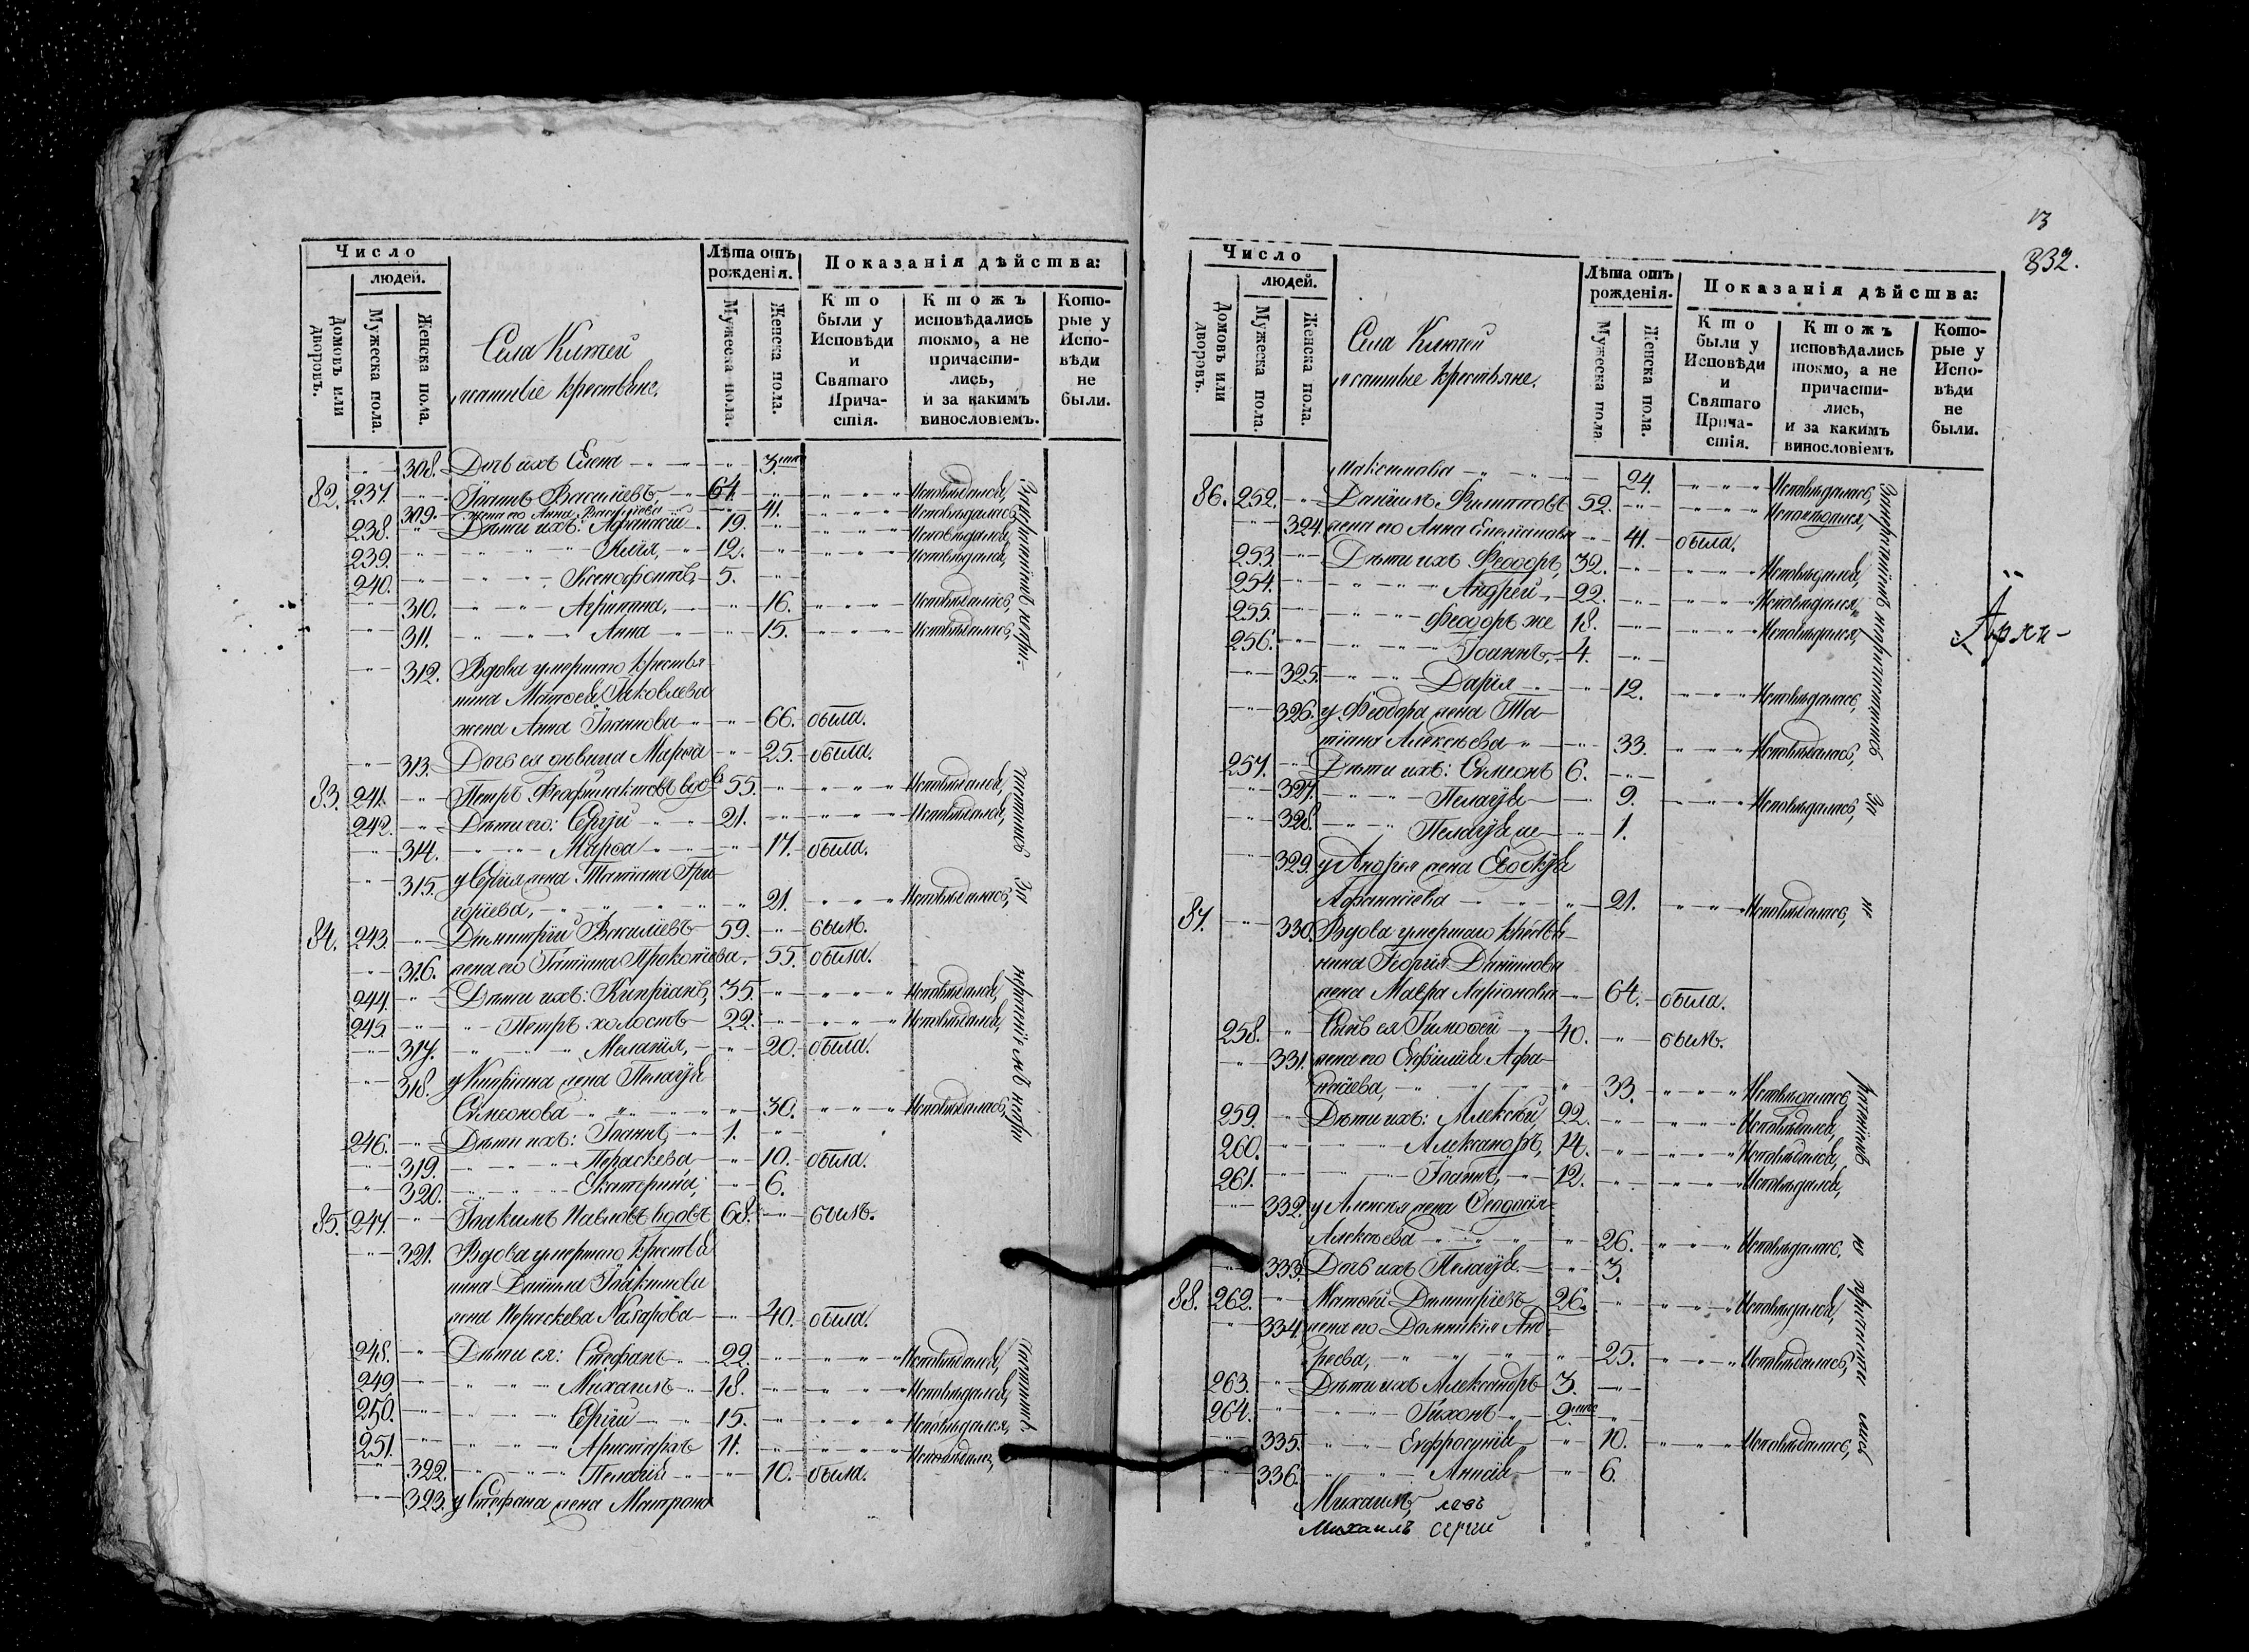 Число
людей.
Домовъ или дворовъ.
Мужеска пола.
Женска пола.
Села
крестьяне.
Лѣта отъ рожденія.
Мужеска пола.
Женска пола.
Показанія дѣйства:
Кто были у Исповѣди и Святаго Причастія.
Ктожъ исповѣдались токмо, а не причастились, и за какимъ винословіемъ.
Которые у Исповѣди не были.
308. Дочь ихъ Елена 3
82. 237. Іоаннъ Василіевъ, 64. Исповѣдался,
309. жена его Анна Василіева 41. Исповѣдалась
238. Дѣти ихъ: Афанасій 19. Исповѣдался,
239. Илія, 12. Исповѣдался,
240. Ксенофонтъ, 5.
310. Агрипина, 16. Исповѣдалась,
311. Анна 15. Исповѣдалась,
312. Вдова умершаго крестья-
нина Матѳея Іаковлева
жена Анна Іоаннова 66. была.
313. Дочь ея дѣвица Марѳа 25. была.
83. 241. Петръ Феофилактовъ вдовъ 55. Исповѣдался,
242. Дѣти его: Сергій 21. Исповѣдался,
314. Марѳа 17. была.
315. у Сергія жена Татіана Гри-
горіева, 21. Исповѣдалась,
84. 243. Димитрій Василіевъ 59. былъ.
316. жена его Татіана Прокопіева, 55. была.
244. Дѣти ихъ: Кипріанъ, 35. Исповѣдался,
245. Петръ холостъ 22. Исповѣдался,
317. Меланія, 20. была.
318. у Кипріана жена Пелагія
Симеонова 30. Исповѣдалась,
246. Дѣти ихъ: Іоаннъ, 1.
319. Параскева 10. была.
320. Екатерина, 6.
85. 247. Іоакимъ Павловъ вдовъ 68. былъ.
321. Вдова умершаго крестья
нина Даніила Іоакимова
жена Параскева Назарова 40. была.
248. Дѣти ея: Стефанъ 22. Исповѣдался,
249. Михаилъ 18. Исповѣдался,
250. Сергій 15. Исповѣдался,
251. Аристархъ 11. Исповѣдался,
322. Пелагія 10. была.
323. у Стефана жена Матрона
13
832.
Число
людей.
Домовъ или дворовъ.
Мужеска пола.
Женска пола.
Села
крестьяне.
Лѣта отъ рожденія.
Мужеска пола
Женска пола.
Показанія дѣйства:
Кто были у Исповѣди и Святаго Причастія.
Ктожъ исповѣдались токмо, а не причастились, и за какимъ винословіемъ
Которые у Исповѣди не были.
Максимова 24. Исповѣдалась,
86. 252. Даніилъ Филиповъ 52. Исповѣдался,
324. жена его Анна 41. была.
253. Дѣти ихъ Феодоръ, 32. Исповѣдался,
254. Андрей 22. Исповѣдался,
255. Феодоръ же 18. Исповѣдался,
256. Іоаннъ, 4.
325. Дарія 12. Исповѣдалась,
326. у Феодора жена Та-
тіана Алексѣева 33. Исповѣдалась,
257. Дѣти ихъ: Симеонъ 6.
327. Пелагія 9. Исповѣдалась,
328. Пелагія же 1.
329. у Андрея жена Евдокія
Афанасіева 21. Исповѣдалась,
87. 330. Вдова умершаго крестья-
нина Георгія Даніилова
жена Мавра Ларіонова 64. была.
258. Сынъ ея Тимоѳей 40. былъ.
331. жена его Евфимія Афа-
насіева, 33. Исповѣдалась,
259. Дѣти ихъ: Алексѣй, 22. Исповѣдался,
260. Александръ, 14. Исповѣдался,
261. Іоаннъ, 12. Исповѣдался,
332. у Алексѣя жена Феодосія
Алексѣева 26. Исповѣдалась,
333. Дочь ихъ Пелагія 3.
88. 262. Матѳей Димитріевъ 26. Исповѣдался,
334. жена его Домникія Анд-
реева, 25. Исповѣдалась,
263. Дѣти ихъ Александръ 3.
264. Тихонъ 2
335. Евфросинія 10. Исповѣдалась,
336. Анисія 6.
Михаилъ
Михаилъ Сергій